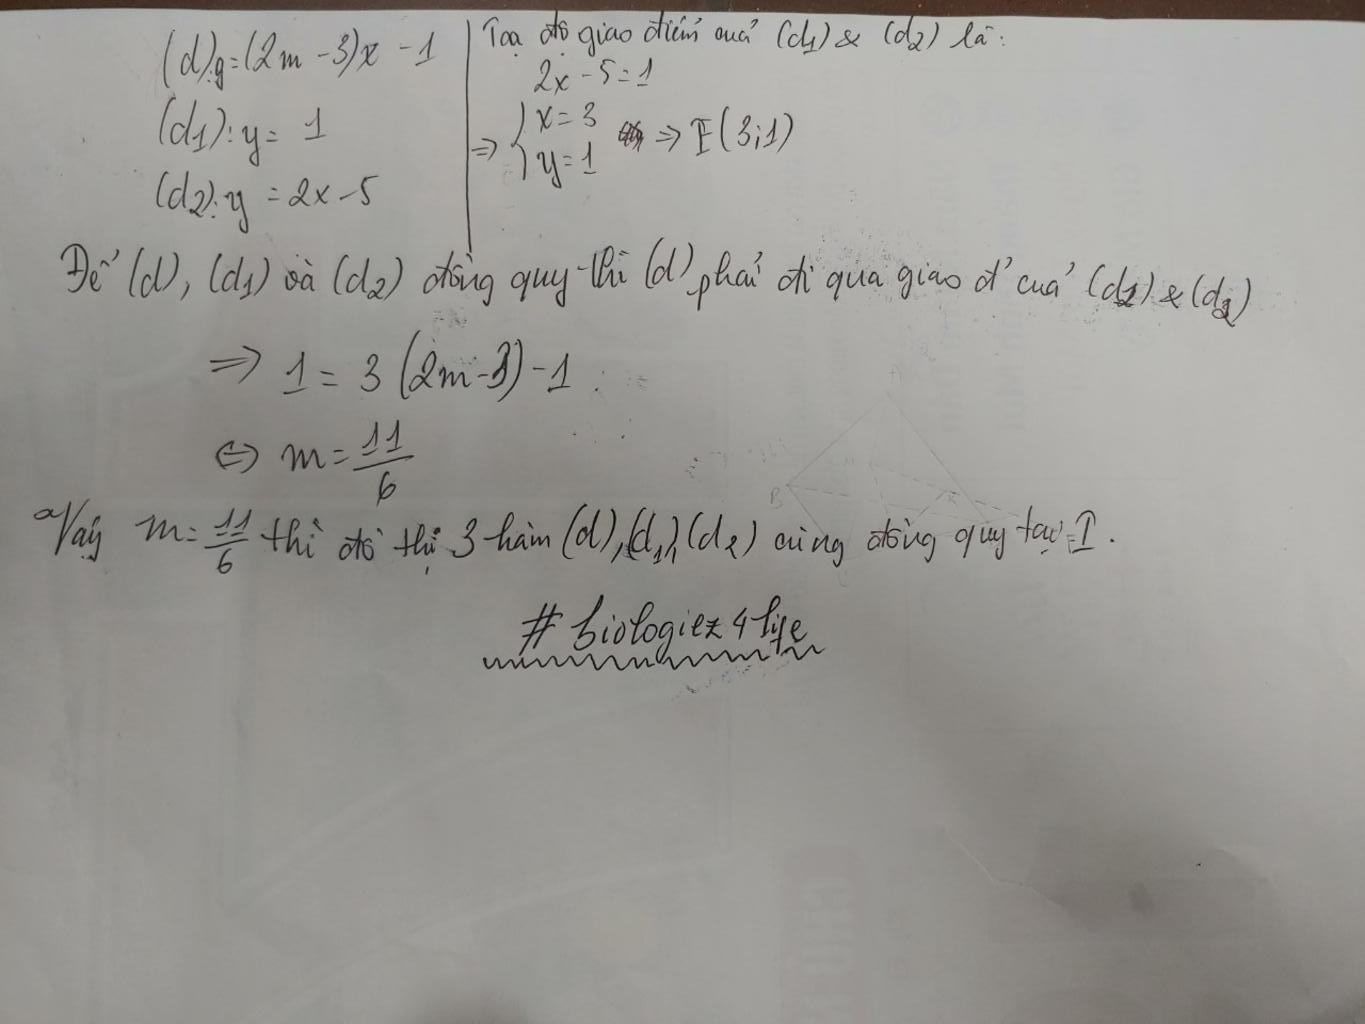 (d):y=(2m-3)x-1
(d1):y= 1
(d2):y=2x-5
Toạ độ giao điểm của (d1) & (d2) là:
2x-5=1
=> { x=3
y=1 => I(3;1)
Để (d), (d1) và (d2) đồng quy thì (d) phải đi qua giao đ' của (d1) & (d2)
=> 1=3(2m-3)-1
<=> m=11/6
Vậy m=11/6 thì đồ thị 3 hàm (d),(d1),(d2) cùng đồng quy tại I.
# biologiez4life
B